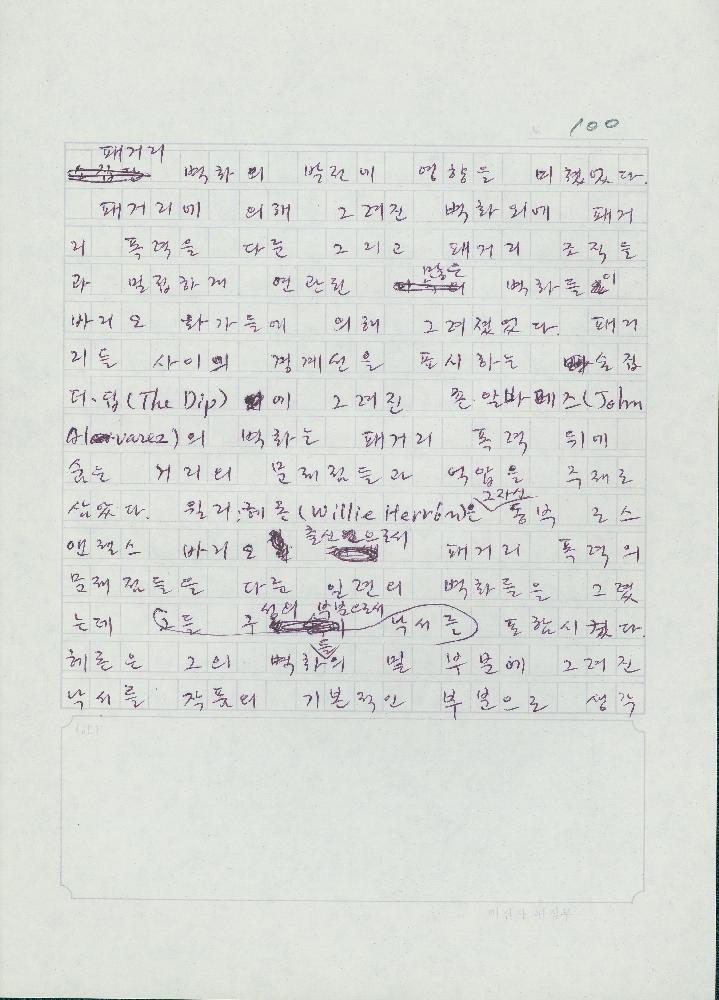 100
패거리
벽화의 발전에 영향을 미쳤었다.
패거리에 의해 그려진 벽화외에 패거
리 폭력을 다룬 그리고 패거리 조직들
과 밀접하게 연관된 많은 벽화들이
바리오 화가들에 의해 그려졌었다. 패거
리들 사이의 경계선을 표시하는 술집
더·딥(The Dip)에 그려진 죤·알바베즈(John
Alvarez)의 벽화는 패거리 폭력 뒤에
숨는 거리의 문제점들과 억압을 주제로
삼았다. 윌리·헤론(Willie Herrón)은 그자신 동부 로스
앤젤스 바리오 출신으로서 패거리 폭력의
문제점들을 다룬 일련의 벽화들을 그렸
는데 그들 구성의 부분으로서 낙서를 포함시켰다.
헤론은 그의 벽화들의 밑 부분에 그려진
낙서를 작품의 기본적인 부분으로 생각